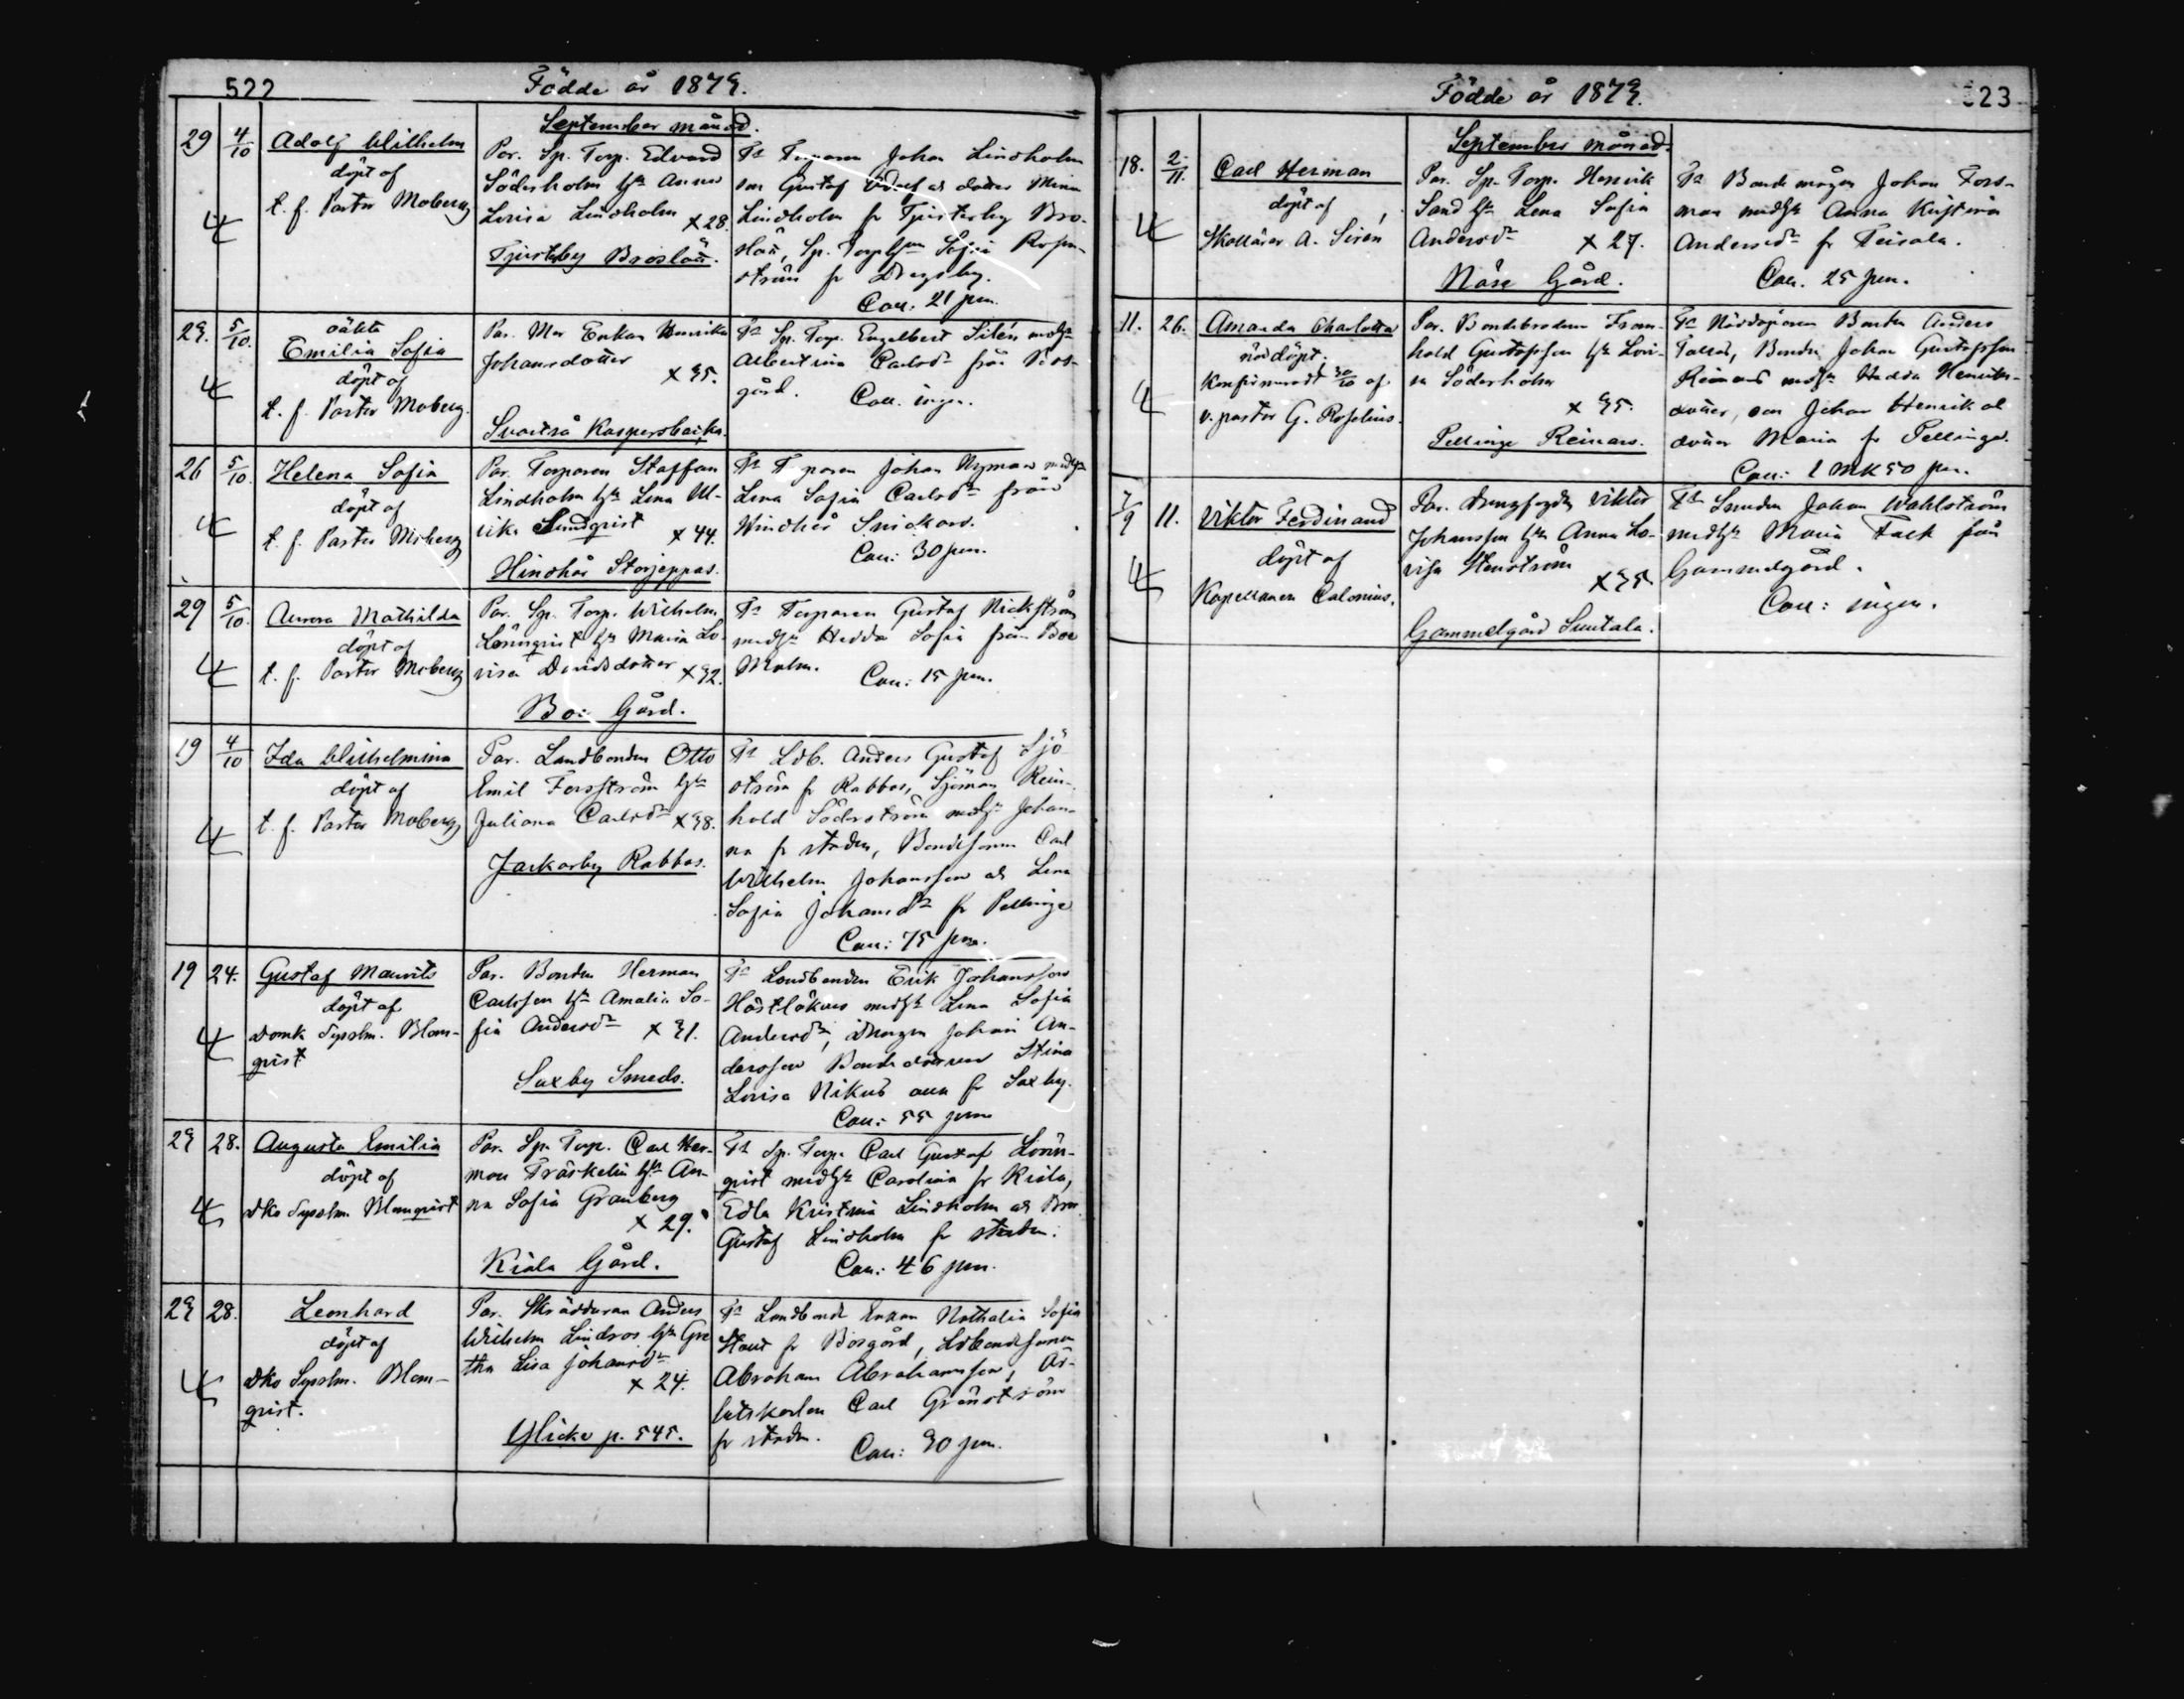 522
Födde år 1879.
September månad.
29 4/10 Adolf Wilhelm
döpt af
t. f. Pastor Moberg
Par. Sp. Torp. Edvard
Söderholm h. Anna
Lovisa Lindholm x 28.
Tjusterby Broslätt.
Torparen Johan Lindholm
son Gustaf dotter Mina
Lindholm fr Tjusterby Bro-
slätt, Sp. Sofia Rosen-
ström fr
Coll. 21 pen.
29. 5/10. oäkta
Emilia Sofia
döpt af
t. f. Pastor Moberg.
Par. Mor Enkan Henrika
Johansdotter
x 35.
Svartså Kaspersbacka.
Sp. Torp. Engelbert Sirén
Albertina Carlsdr från
gård. Coll. ingen.
26 5/10. Helena Sofia
döpt af
t. f. Pastor Moberg
Par. Torparen Staffan
Lindholm h. Lena Ul-
rika Sundqvist x 44.
Hindhår Storjeppas.
Johan Nyman
Lena Sofia Carlsdr från
Hindhår Snickars.
Coll: 30 pen.
29 5/10. Aurora Mathilda
döpt af
t. f. Pastor Moberg
Par. Sp. Torp. Wilhelm
Lönnqvist h. Maria Lo-
visa Davidsdotter x 32.
Boe Gård.
Torparen Gustaf Nickström
Hedda Sofia från Boe
Malm. Coll: 15 pen.
19 4/10 Ida Wilhelmina
döpt af
t. f. Pastor Moberg
Par. Landbonden Otto
Emil Forsström h.
Juliana Carlsdr x 38.
Jackarby Rabbas.
Ldb. Anders Gustaf Sjö-
ström fr Rabbas, Sjöman Rein-
hold Söderström Johan-
na fr staden, Bondesonen Carl
Wilhelm Johansson och Lena
Sofia Johansdr fr Pellinge
Coll: 75 pen.
19 24. Gustaf Maurits
döpt af
Domk Sysslm. Blom-
qvist
Par. Bonden Herman
Carlsson h. Amalia So-
fia Andersdr x 31.
Saxby Smeds.
Landbonden Erik Johansson
Lena Sofia
Andersdr, Drengen Johan An-
dersson Bonde dottren Stina
Lovisa Nikus fr Saxby.
Coll: 55 pen
23 28. Augusta Emilia
döpt af
Dko Sysslm Blomqvist
Par. Sp. Torp. Carl Her-
man Träskelin h. An-
na Sofia Granberg
x 29.
Kiala Gård.
Sp. Torp. Carl Gustaf Lönn-
qvist Carolina fr Kiala,
Edla Kristina Lindholm och
Gustaf Lindholm fr staden.
Coll: 46 pen.
23 28. Leonhard
döpt af
Dko Sysslm. Blom-
qvist.
Par. Skräddaren Anders
Wilhelm Lindros h. Gre
tha Lisa Johansdr
x 24.
Ylicke p. 545.
Landbonde Enkan Nathalia Sofia
fr Borgård,
Abraham Abrahamsson,
Carl Granström
fr staden. Coll: 30 pen.
Födde år 1879.
523
September månad.
18. 2/11. Carl Herman
döpt af
Skollärar. A. Sirén
Par. Sp. Torp. Henrik
Sand h. Lena Sofia
Andersdr x 27.
Näse Gård.
Bonde mågen Johan Fors-
man Anna Kristina
Andersdr fr Teisala.
Coll. 25 pen.
11. 26. Amanda Charlotta
nöddöpt.
Konfirmeradt 30/10 af
v. pastor G. Roselius.
Par. Bondebrodern From-
hold Gustafsson h. Lovi-
sa Söderholm
x 35.
Pellinge Reimars.
Nöddöparen Bonden Anders
Bonden Johan Gustafsson
Reimars Hedda Henriks-
dotter, son Johan Henrik
dotter Maria fr Pellinge.
Coll: 1 MK 50 pen.
7/9 11. Viktor Ferdinand
döpt af
Kapellanen Calonius.
Par. Viktor
Johansson h. Anna Lo-
visa Stenström
x 35
Gammelgård Suutala.
Smeden Johan Wahlström
Maria Tack från
Gammelgård.
Coll: ingen.